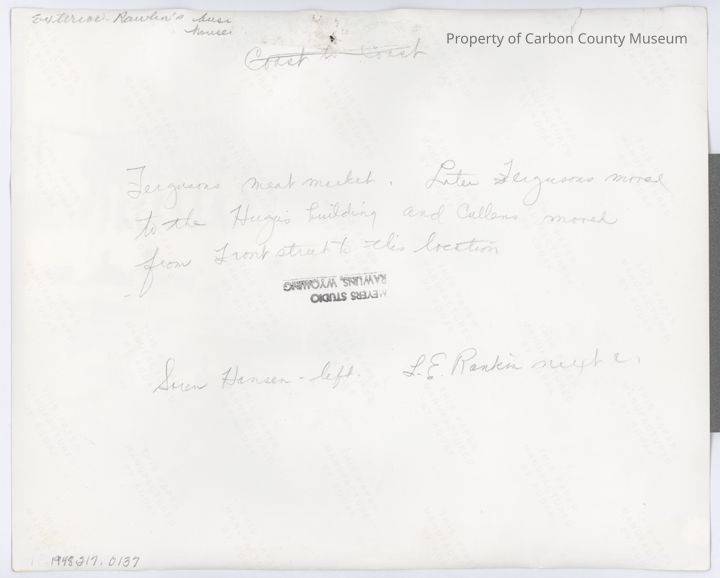 Exterior - Rawlin's busi
houses
Property of Carbon County Museum
Coast to Coast
Fergusons meat market. Later Fergusons moved
to the Hugus building and Cullens moved
from Front street to this location
MEYERS STUDIO
RAWLINS, WYOMING
Soren Hansen - left. L.E. Rankin next
1948.217.0137